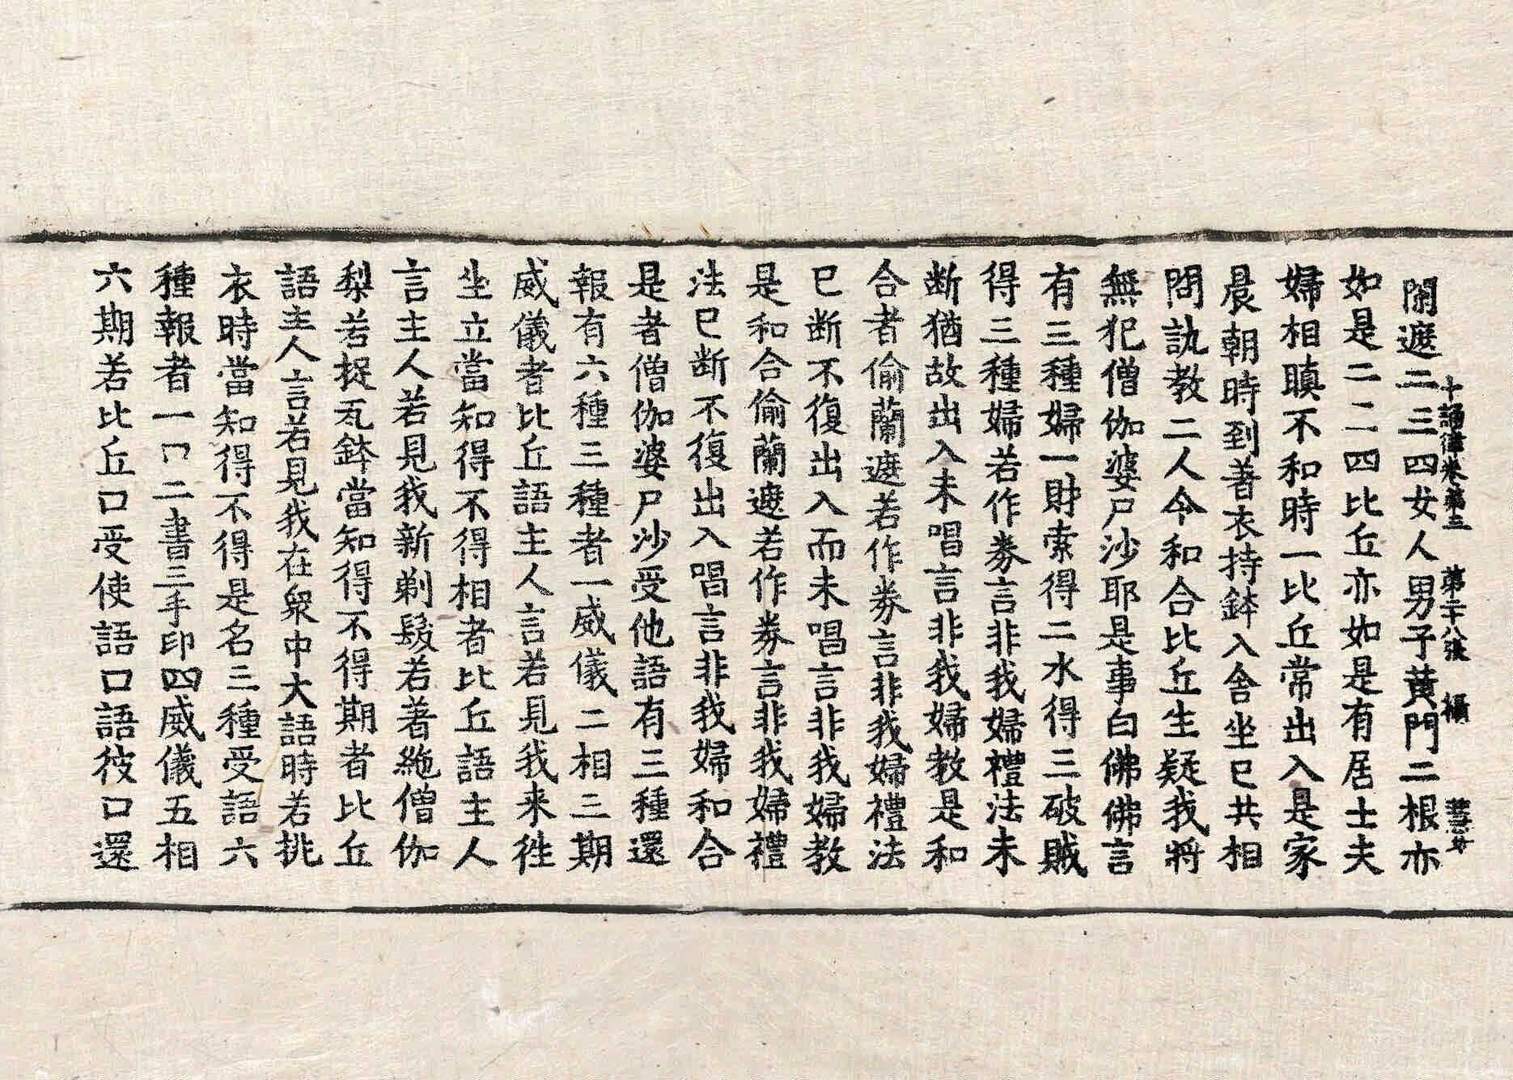 閘遮二三四女人男子黃門二根亦
十誦律卷第三 第二十八張 攝
如是二二四比丘亦如是有居士夫
婦相瞋不和時一比丘常出入是家
晨朝時到著衣持鉢入舍坐已共相
問訊教二人令和合比丘生疑我將
無犯僧伽婆尸沙耶是事白佛佛言
有三種婦一財索得二水得三破賊
得三種婦若作券言非我婦禮法未
断猶故出入未唱言非我婦教是和
合者偷蘭遮若作券言非我婦禮法
已断不復出入而未唱言非我婦教
是和合偷蘭遮若作券言非我婦禮
法已断不復出入唱言非我婦和合
是者僧伽婆尸沙受他語有三種還
報有六種三種者一威儀二相三期
威儀者比丘語主人言若見我来徃
坐立當知得不得相者比丘語主人
言主人若見我新剃髮若著絁僧伽
梨若捉瓦鉢當知得不得期者比丘
語主人言若見我在眾中大語時若挑
衣時當知得不得是名三種受語六
種報者一口二書三手印四威儀五相
六期若比丘口受使語口語彼口還